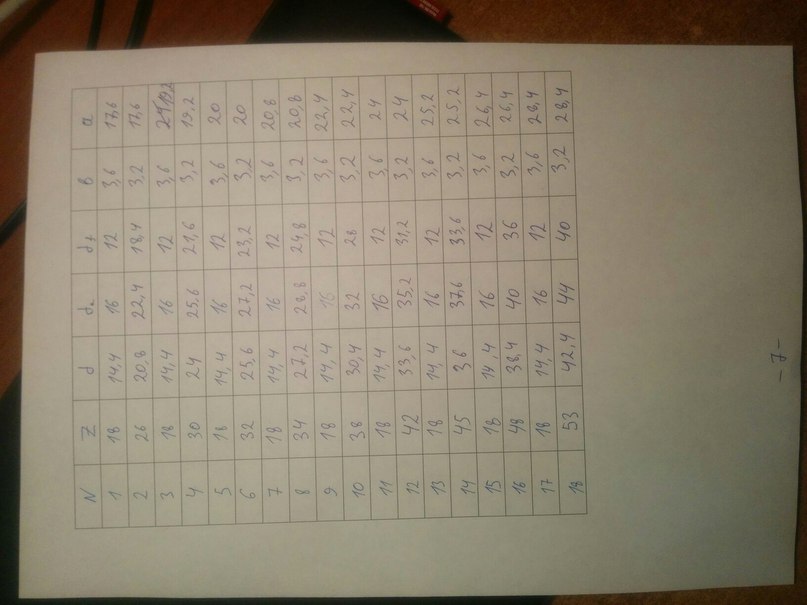 N Z d da df в a
1 18 14,4 16 12 3,6 17,6
2 26 20,8 22,4 18,4 3,2 17,6
3 18 14,4 16 12 3,6 19,2
4 30 24 25,6 21,6 3,2 19,2
5 18 14,4 16 12 3,6 20
6 32 25,6 27,2 23,2 3,2 20
7 18 14,4 16 12 3,6 20,8
8 34 27,2 28,8 24,8 3,2 20,8
9 18 14,4 16 12 3,6 22,4
10 38 30,4 32 28 3,2 22,4
11 18 14,4 16 12 3,6 24
12 42 33,6 35,2 31,2 3,2 24
13 18 14,4 16 12 3,6 25,2
14 45 36 37,6 33,6 3,2 25,2
15 18 14,4 16 12 3,6 26,4
16 48 38,4 40 36 3,2 26,4
17 18 14,4 16 12 3,6 28,4
18 53 42,4 44 40 3,2 28,4
-7-